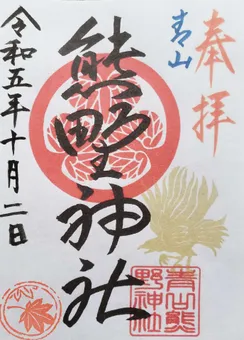 奉拝
青山
熊野神社
令和五年十月二日
青山熊野神社